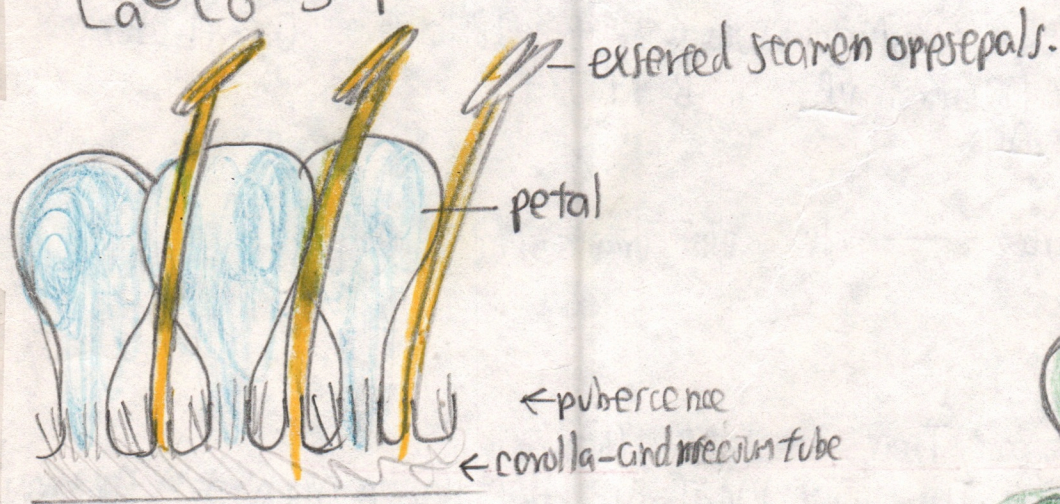 exserted stamen opp sepals.
petal
←pubercence
←corolla-andrmecium tube